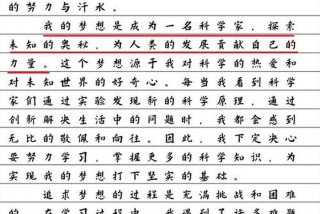 的努力与汗水。
我的梦想是成为一名科学家，探索
未知的奥秘，为人类的发展贡献自己的
力量。这个梦想源于我对科学的热爱和
对未知世界的好奇心。每当我看到科学
家们通过实验发现新的科学原理，通过
创新解决生活中的问题时，我都会感到
无比的敬佩和向往。因此，我下定决心
要努力学习，掌握更多的科学知识，为
实现我的梦想打下坚实的基础。
追求梦想的过程是充满挑战和困难
的。在学习过程中，我遇到了许多难